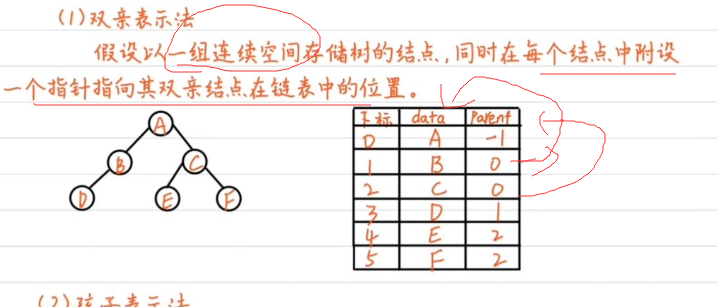 (1)双亲表示法
假设以一组连续空间存储树的结点,同时在每个结点中附设
一个指针指向其双亲结点在链表中的位置。
A
B C
D E F
下标 data parent
0 A -1
1 B 0
2 C 0
3 D 1
4 E 2
5 F 2
(2)孩子表示法